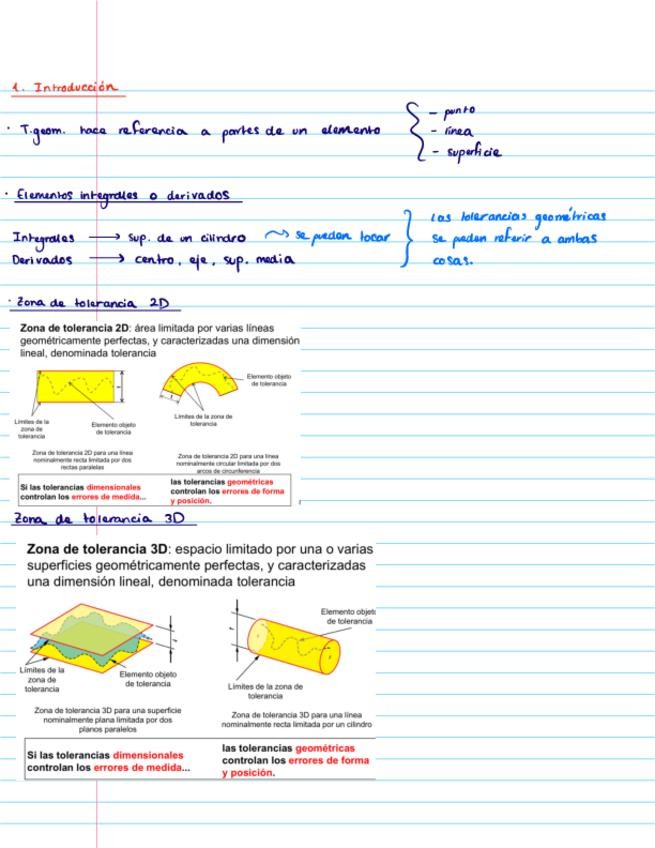 1. Introducción
· T.geom. hace referencia a partes de un elemento
- punto
- línea
- superficie
· Elementos integrales o derivados
Integrales → sup. de un cilindro ~> se pueden tocar
Derivados → centro, eje, sup. media
las tolerancias geométricas
se pueden referir a ambas
cosas.
· Zona de tolerancia 2D
Zona de tolerancia 2D: área limitada por varias líneas
geométricamente perfectas, y caracterizadas una dimensión
lineal, denominada tolerancia
Límites de la
zona de
tolerancia
Elemento objeto
de tolerancia
Zona de tolerancia 2D para una línea
nominalmente recta limitada por dos
rectas paralelas
Elemento objeto
de tolerancia
Límites de la zona de
tolerancia
Zona de tolerancia 2D para una línea
nominalmente circular limitada por dos
arcos de circunferencia
Si las tolerancias dimensionales
controlan los errores de medida...
las tolerancias geométricas
controlan los errores de forma
y posición.
Zona de tolerancia 3D
Zona de tolerancia 3D: espacio limitado por una o varias
superficies geométricamente perfectas, y caracterizadas
una dimensión lineal, denominada tolerancia
Límites de la
zona de
tolerancia
Elemento objeto
de tolerancia
Zona de tolerancia 3D para una superficie
nominalmente plana limitada por dos
planos paralelos
Elemento objeto
de tolerancia
Límites de la zona de
tolerancia
Zona de tolerancia 3D para una línea
nominalmente recta limitada por un cilindro
Si las tolerancias dimensionales
controlan los errores de medida...
las tolerancias geométricas
controlan los errores de forma
y posición.